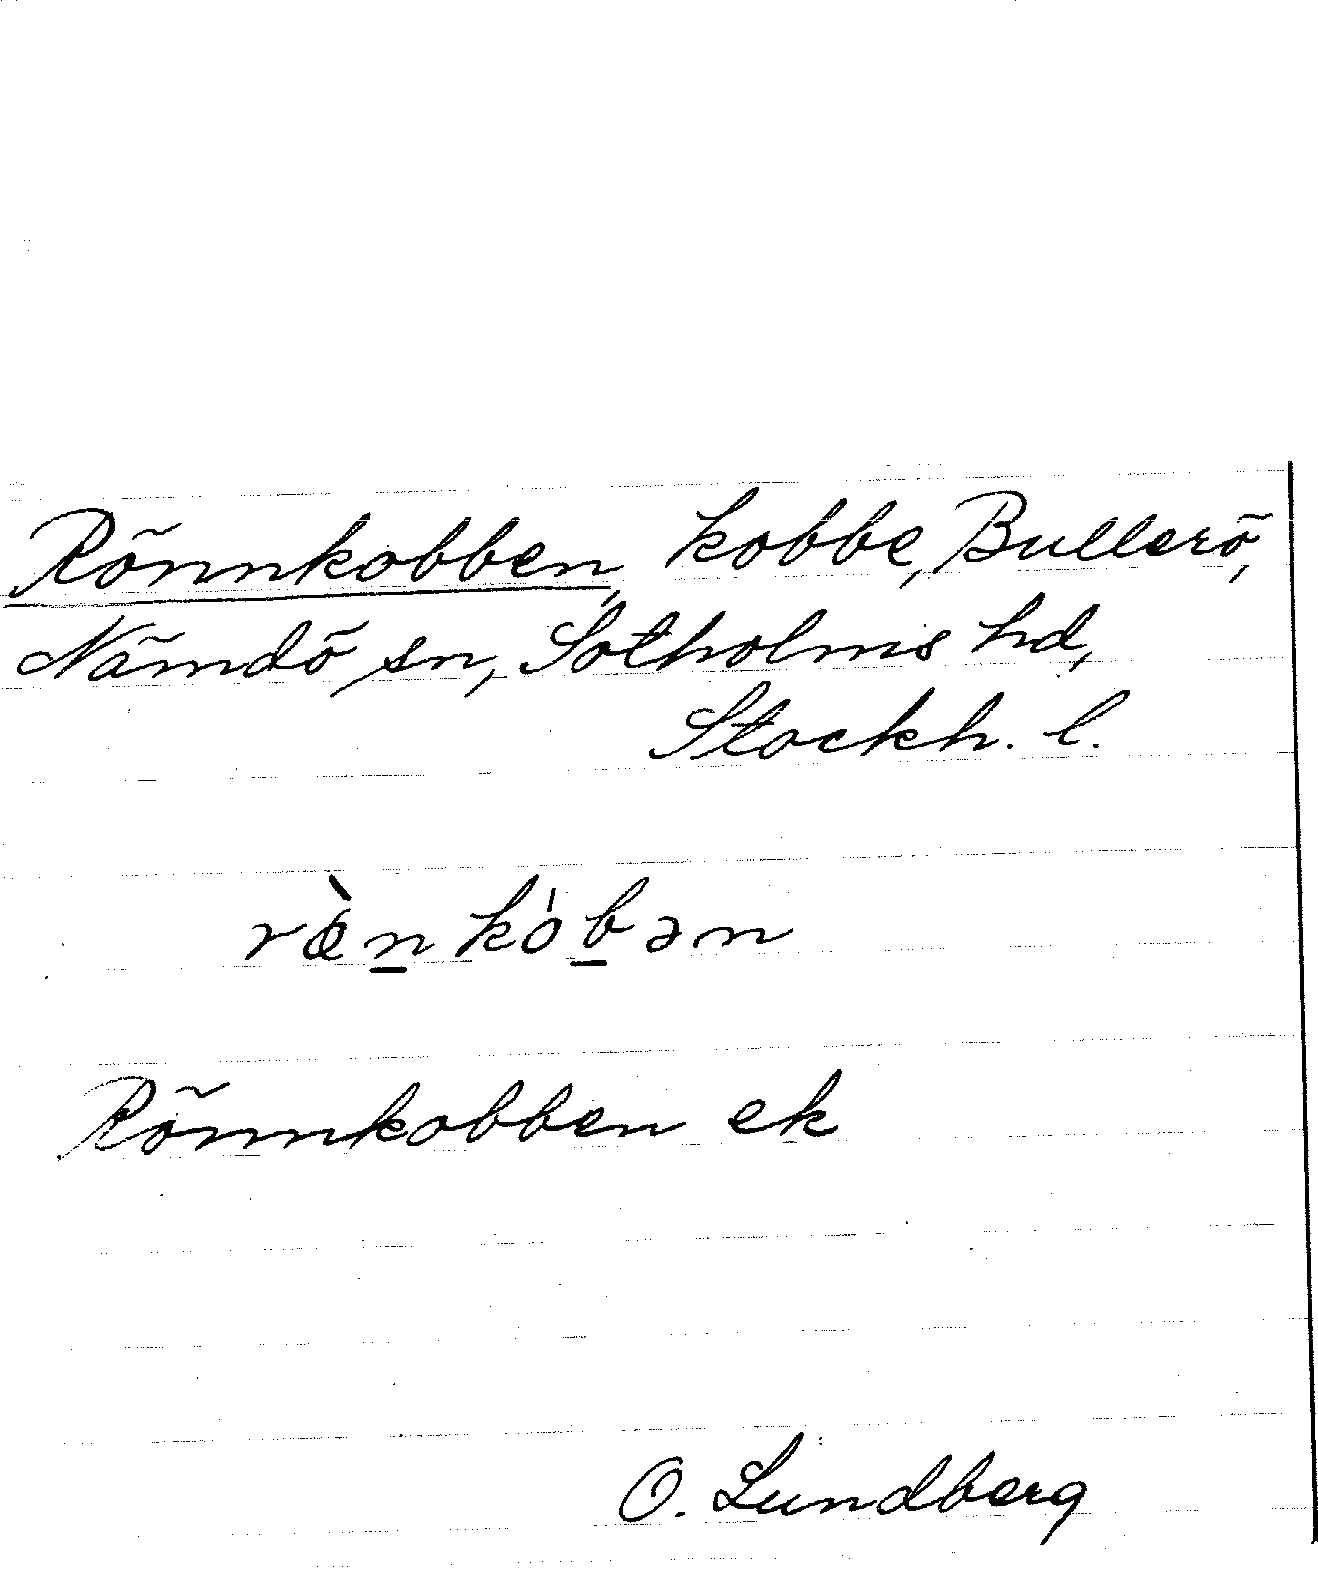 Rönnkobben, kobbe, Bullerö,
Nämdö sn, Sotholms hd,
Stockh. l.
rœ̀n̲kòb̲ən
Rönnkobben ek
O. Lundberg